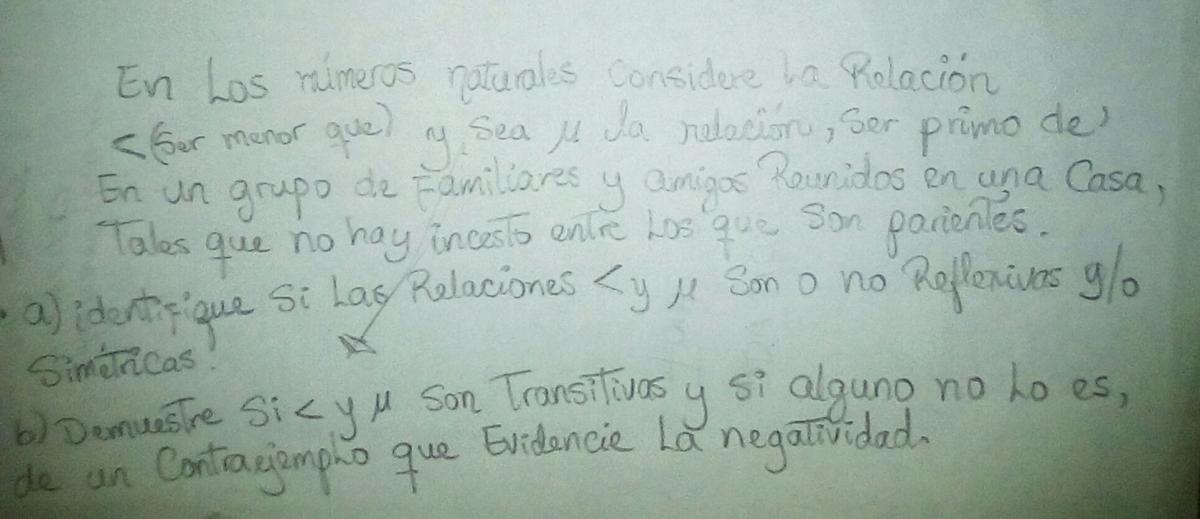 En Los números naturales Considere La Relación
< (Ser menor que) y Sea μ la relación, Ser primo de,
En un grupo de Familiares y amigos Reunidos en una Casa,
Tales que no hay incesto entre Los que Son parientes.
a) identifique Si Las Relaciones < y μ Son o no Reflexivas y/o
Simétricas.
b) Demuestre Si < y μ Son Transitivas y si alguno no Lo es,
de un Contraejemplo que Evidencie La negatividad.